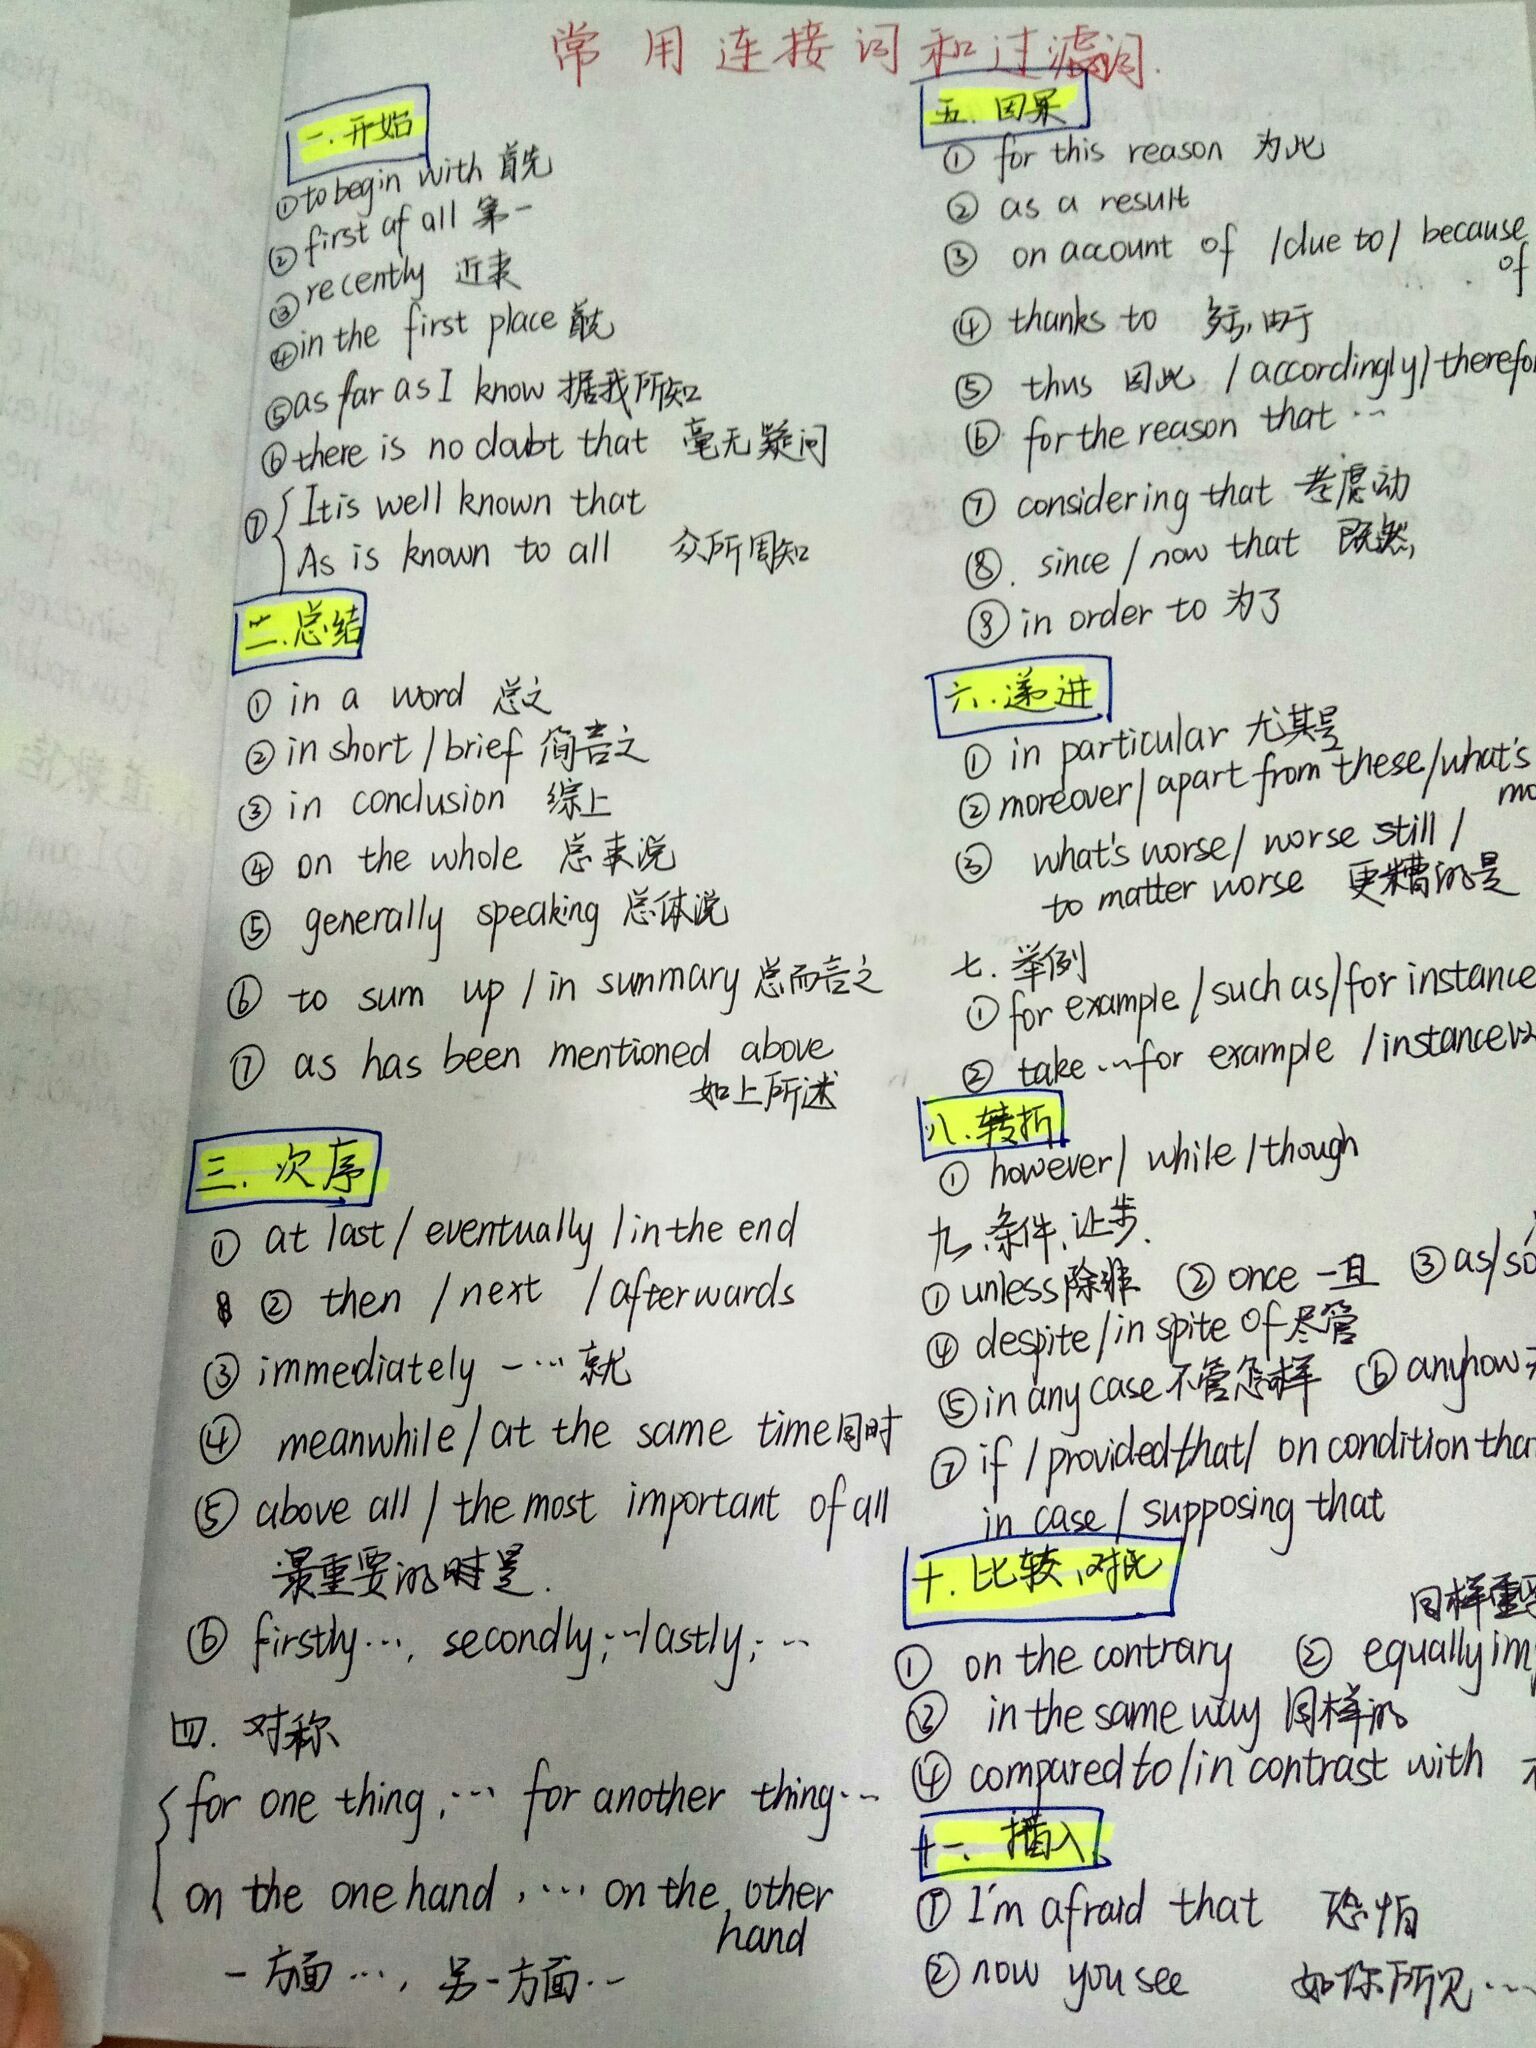 常用连接词和过滤词.
一.开始
①to begin with 首先
②first of all 第一
③recently 近来
④in the first place 首先
⑤as far as I know 据我所知
⑥there is no doubt that 毫无疑问
⑦It is well known that
As is known to all 众所周知
二.总结
① in a word 总之
② in short / brief 简言之
③ in conclusion 综上
④ on the whole 总来说
⑤ generally speaking 总体说
⑥ to sum up / in summary 总而言之
⑦ as has been mentioned above
如上所述
三.次序
① at last / eventually / in the end
② then / next / afterwards
③ immediately 一…就
④ meanwhile / at the same time 同时
⑤ above all / the most important of all
最重要的时是.
⑥ firstly…, secondly,…lastly,…
四.对称
for one thing,… for another thing…
on the one hand,… on the other
hand
一方面…,另一方面…
五.因果
① for this reason 为此
② as a result
③ on account of / due to / because
of
④ thanks to 多亏,由于
⑤ thus 因此 / accordingly / therefor
⑥ for the reason that …
⑦ considering that 考虑动
⑧. since / now that 既然,
⑧ in order to 为了
六.递进
① in particular 尤其是
② moreover / apart from these / what's
mo
③ what's worse / worse still /
to matter worse 更糟的是
七.举例
① for example / such as / for instance
② take …for example / instance
八.转折
① however / while / though
九.条件、让步.
① unless 除非 ② once 一旦 ③ as/so
④ despite / in spite of 尽管
⑤ in any case 不管怎样 ⑥ anyhow
⑦ if / provided that / on condition tha
in case / supposing that
十.比较、对比
同样重要
① on the contrary ② equally im
③ in the same way 同样的
④ compared to / in contrast with
十一、插入
① I'm afraid that 恐怕
② now you see 如你所见…